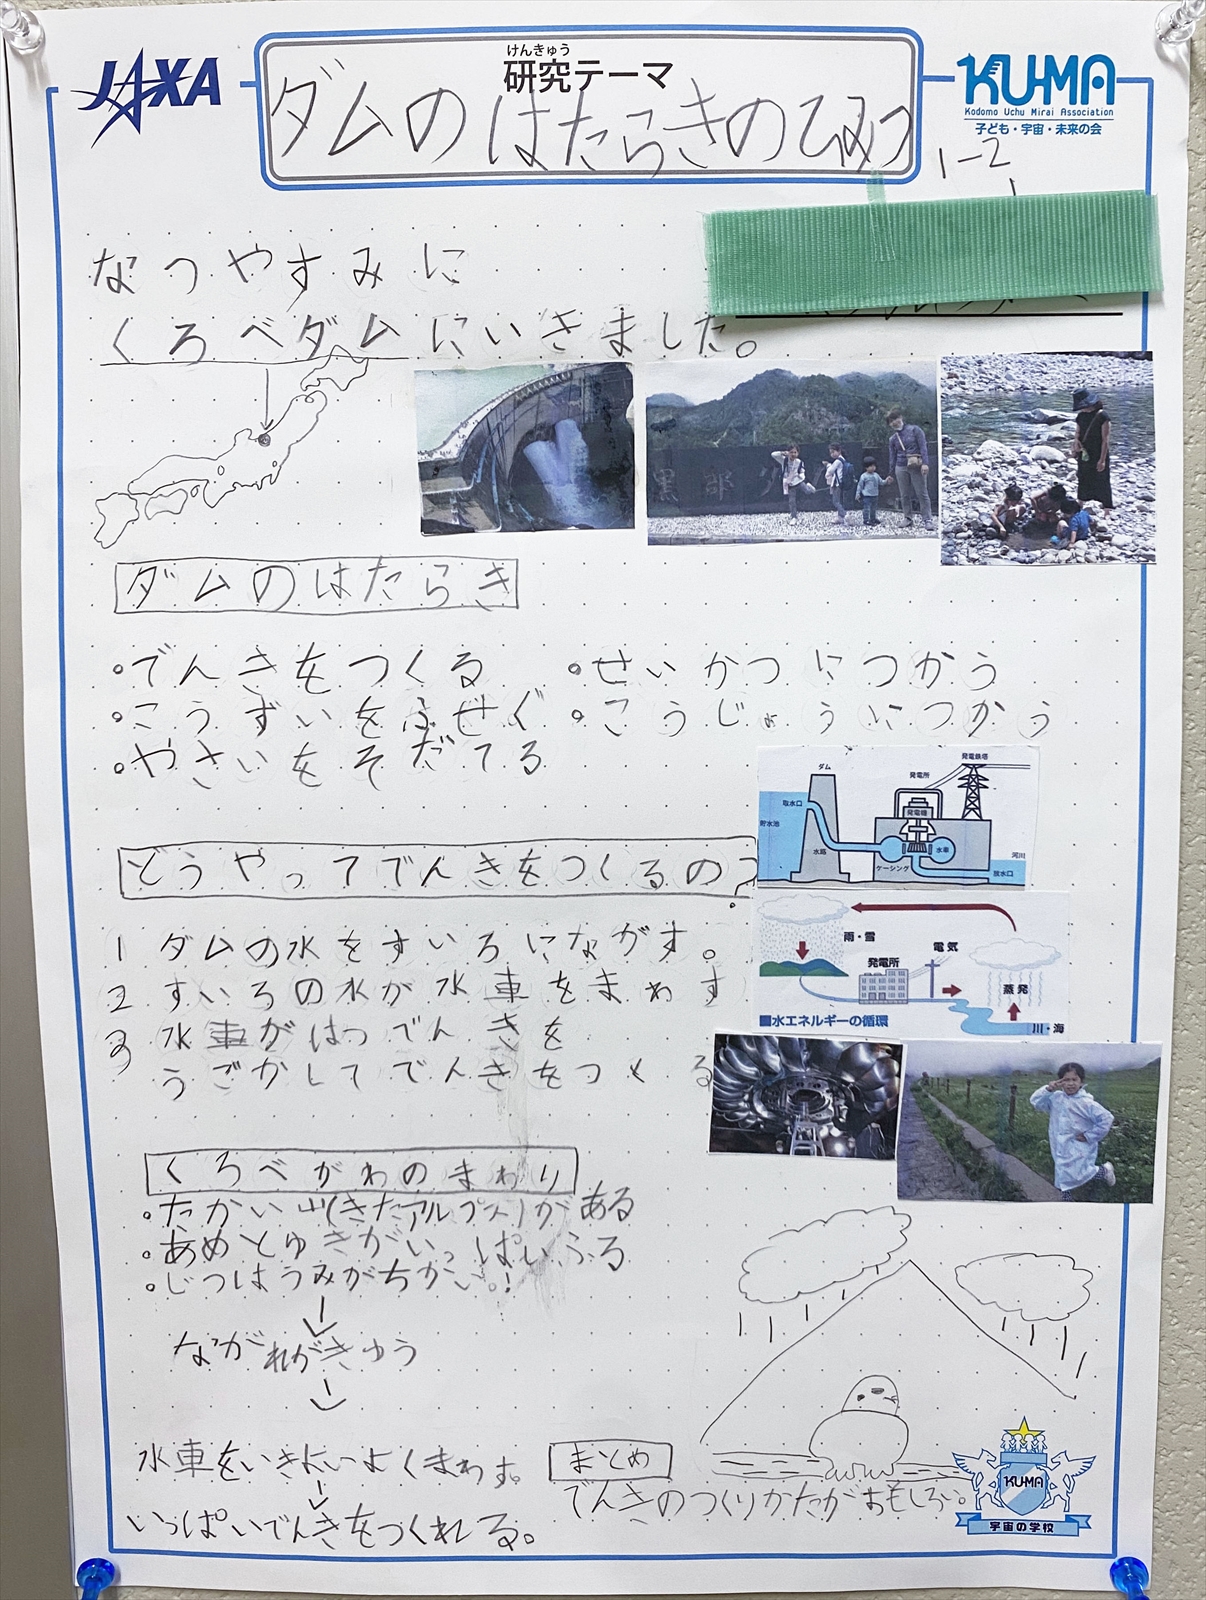 JAXA
けんきゅう
研究テーマ
KU-MA
Kodomo Uchu Mirai Association
子ども・宇宙・未来の会
ダムのはたらきのひみつ
1-2
なつやすみに
くろべダムにいきました。
黒部
ダムのはたらき
・でんきをつくる
・せいかつにつかう
・こうずいをふせぐ
・こうじょうにつかう
・やさいをそだてる
ダム
発電所
発電鉄塔
取水口
発電機
貯水池
水路
水車
河川
ケーシング
放水口
どうやってでんきをつくるの?
雨・雪
電気
発電所
蒸発
■水エネルギーの循環
川・海
1 ダムの水をすいろにながす。
2 すいろの水が水車をまわす
3 水車がはつでんきを
うごかしてでんきをつくる
くろべがわのまわり
・たかい山(きたアルプス)がある
・あめとゆきがいっぱいふる
・じつはうみがちかい!
↓
ながれがきゅう
↓
水車をいきおいよくまわす。
↓
いっぱいでんきをつくれる。
まとめ
でんきのつくりかたがおもしろい。
KU-MA
宇宙の学校